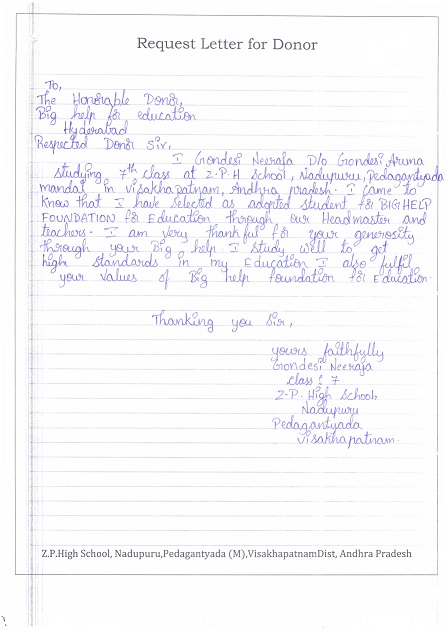 Request Letter for Donor
To,
The Honorable Donor,
Big help for education
Hyderabad
Respected Donor Sir,
I Gondesi Neeraja D/o Gondesi, Aruna
studying 7th class at Z.P.H School, Nadupuru, Pedagantyada
mandal in visakhapatnam, Andhra pradesh. I came to
know that I have selected as adopted student for BIG HELP
FOUNDATION for Education through our Headmaster and
teachers. I am very thankful for your generosity
through your Big help I study well to get
high standards in my Education I also fulfil
your values of Big help foundation for Education.
Thanking you Sir,
yours faithfully
Gondesi Neeraja
class : 7
Z.P. High School,
Nadupuru
Pedagantyada
Visakhapatnam.
Z.P.High School, Nadupuru,Pedagantyada (M),VisakhapatnamDist, Andhra Pradesh